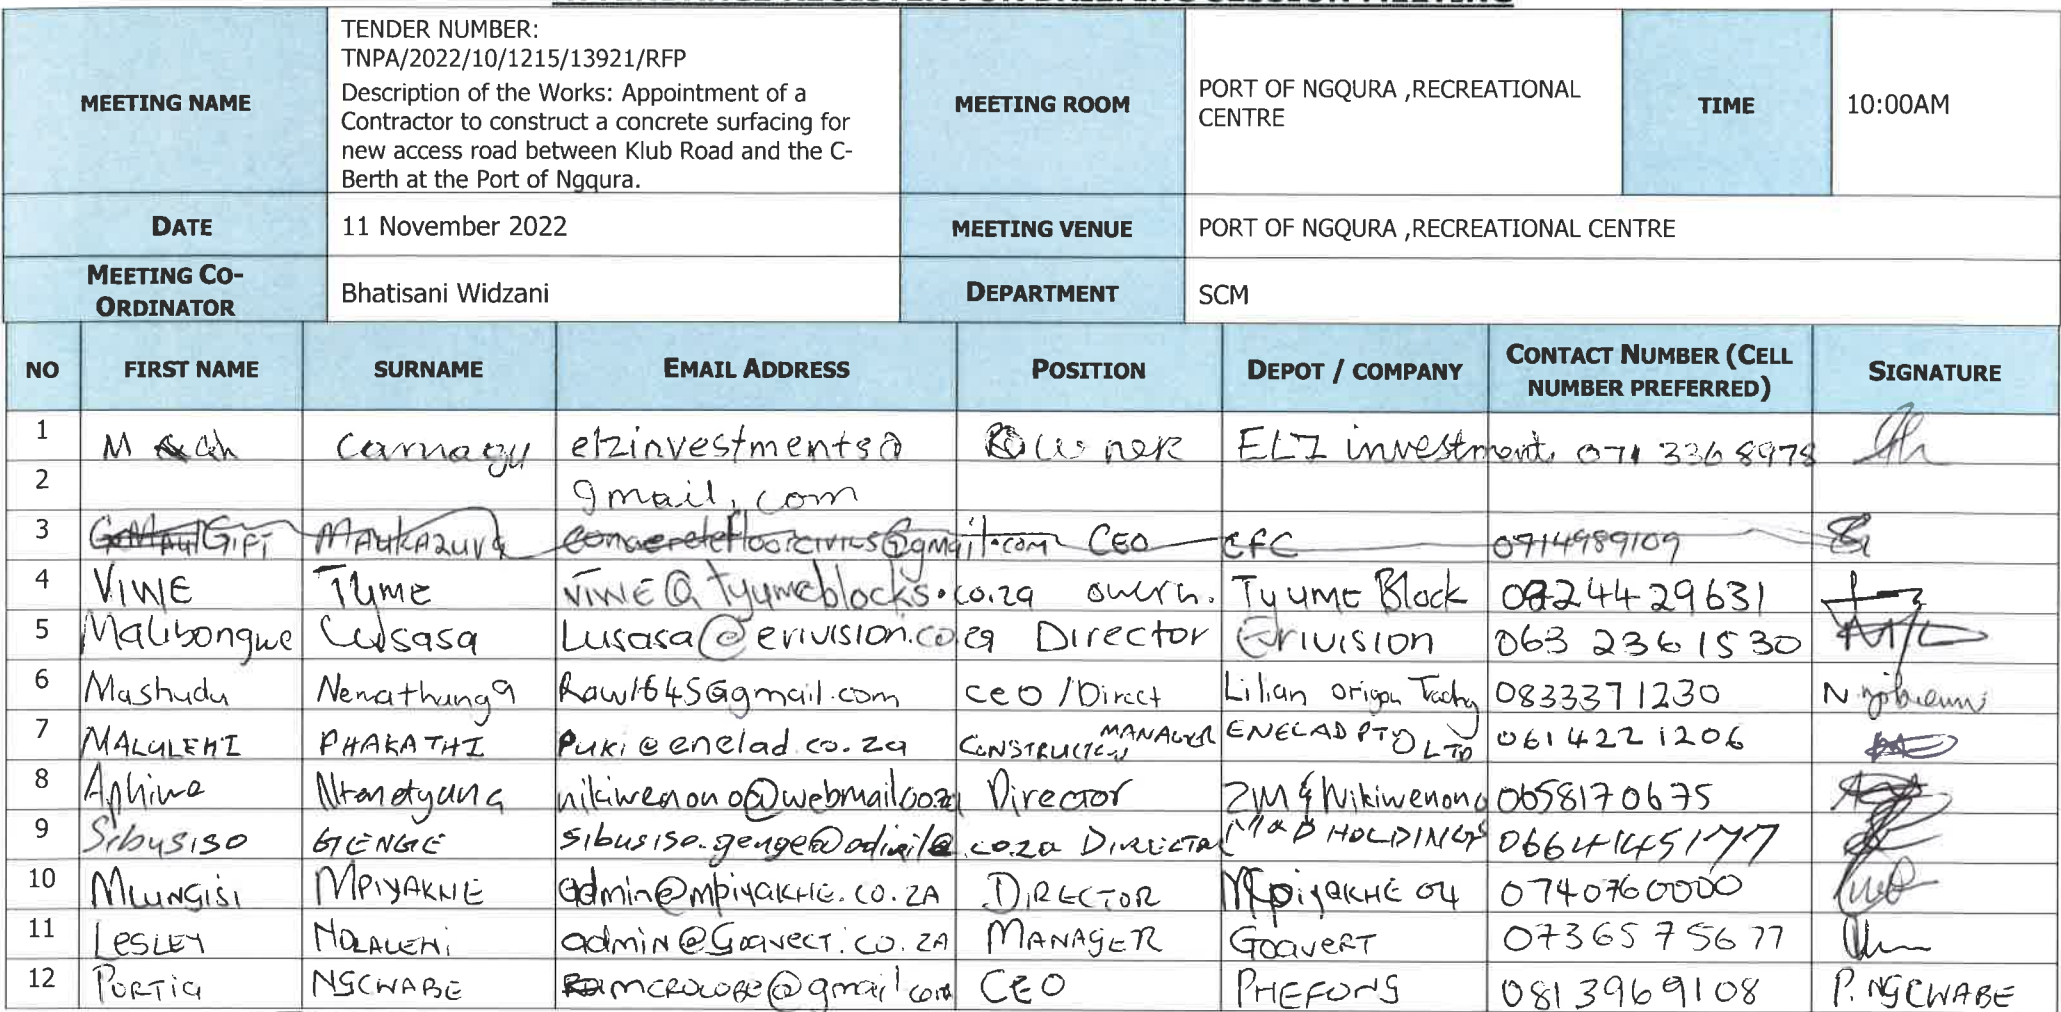 ATTENDANCE REGISTER FOR BRIEFING SESSION MEETING
MEETING NAME
TENDER NUMBER:
TNPA/2022/10/1215/13921/RFP
Description of the Works: Appointment of a
Contractor to construct a concrete surfacing for
new access road between Klub Road and the C-
Berth at the Port of Ngqura.
MEETING ROOM
PORT OF NGQURA ,RECREATIONAL
CENTRE
TIME
10:00AM
DATE
11 November 2022
MEETING VENUE
PORT OF NGQURA ,RECREATIONAL CENTRE
MEETING CO-
ORDINATOR
Bhatisani Widzani
DEPARTMENT
SCM
NO FIRST NAME SURNAME EMAIL ADDRESS POSITION DEPOT / COMPANY CONTACT NUMBER (CELL
NUMBER PREFERRED) SIGNATURE
1 M elzinvestments@ owner investment 071 336 8978
2 gmail.com
3 Gift MAUKAZUVA concretefloorcivils@gmail.com CEO CFC 0714989109
4 VIWE Tyume VIWE@tyumeblocks.co.za Tyume Block 0824429631
5 Malibongwe Lusasa Lusasa@erivision.co.za Director Erivision 063 236 1530
6 Mashudu Nemathunga Raw1645@gmail.com CEO/Direct Lilian origon 0833371230
7 MALULEKI PHAKATHI Puki@enelad.co.za CONSTRUCTION MANAGER ENELAD PTY LTD 0614221206
8 Aphiwe nikiwenono@webmail.co.za Director ZM & Nikiwenono 0658170675
9 Sibusiso GENGE DIRECTOR M&D HOLDINGS 0664145177
10 MLUNGISI MPIYAKHE admin@MPIYAKHE.CO.ZA DIRECTOR MPIYAKHE 04 0740760000
11 LESLEY admin@Goavect.co.ZA MANAGER GOAVERT 0736575677
12 PORTIA NGCWABE CEO PHEFONS 0813969108 P. NGCWABE